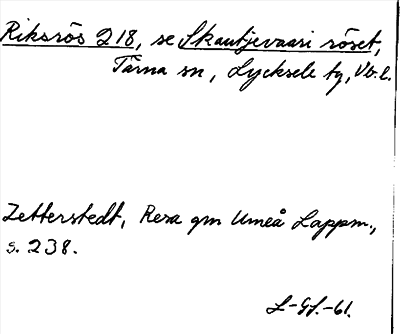 Riksrös 218, se Skautjevaari röset,
Tärna sn, Lycksele tg, Vb. l.
Zetterstedt, Resa gm Umeå Lappm.,
s. 238.
L-Gf.-61.